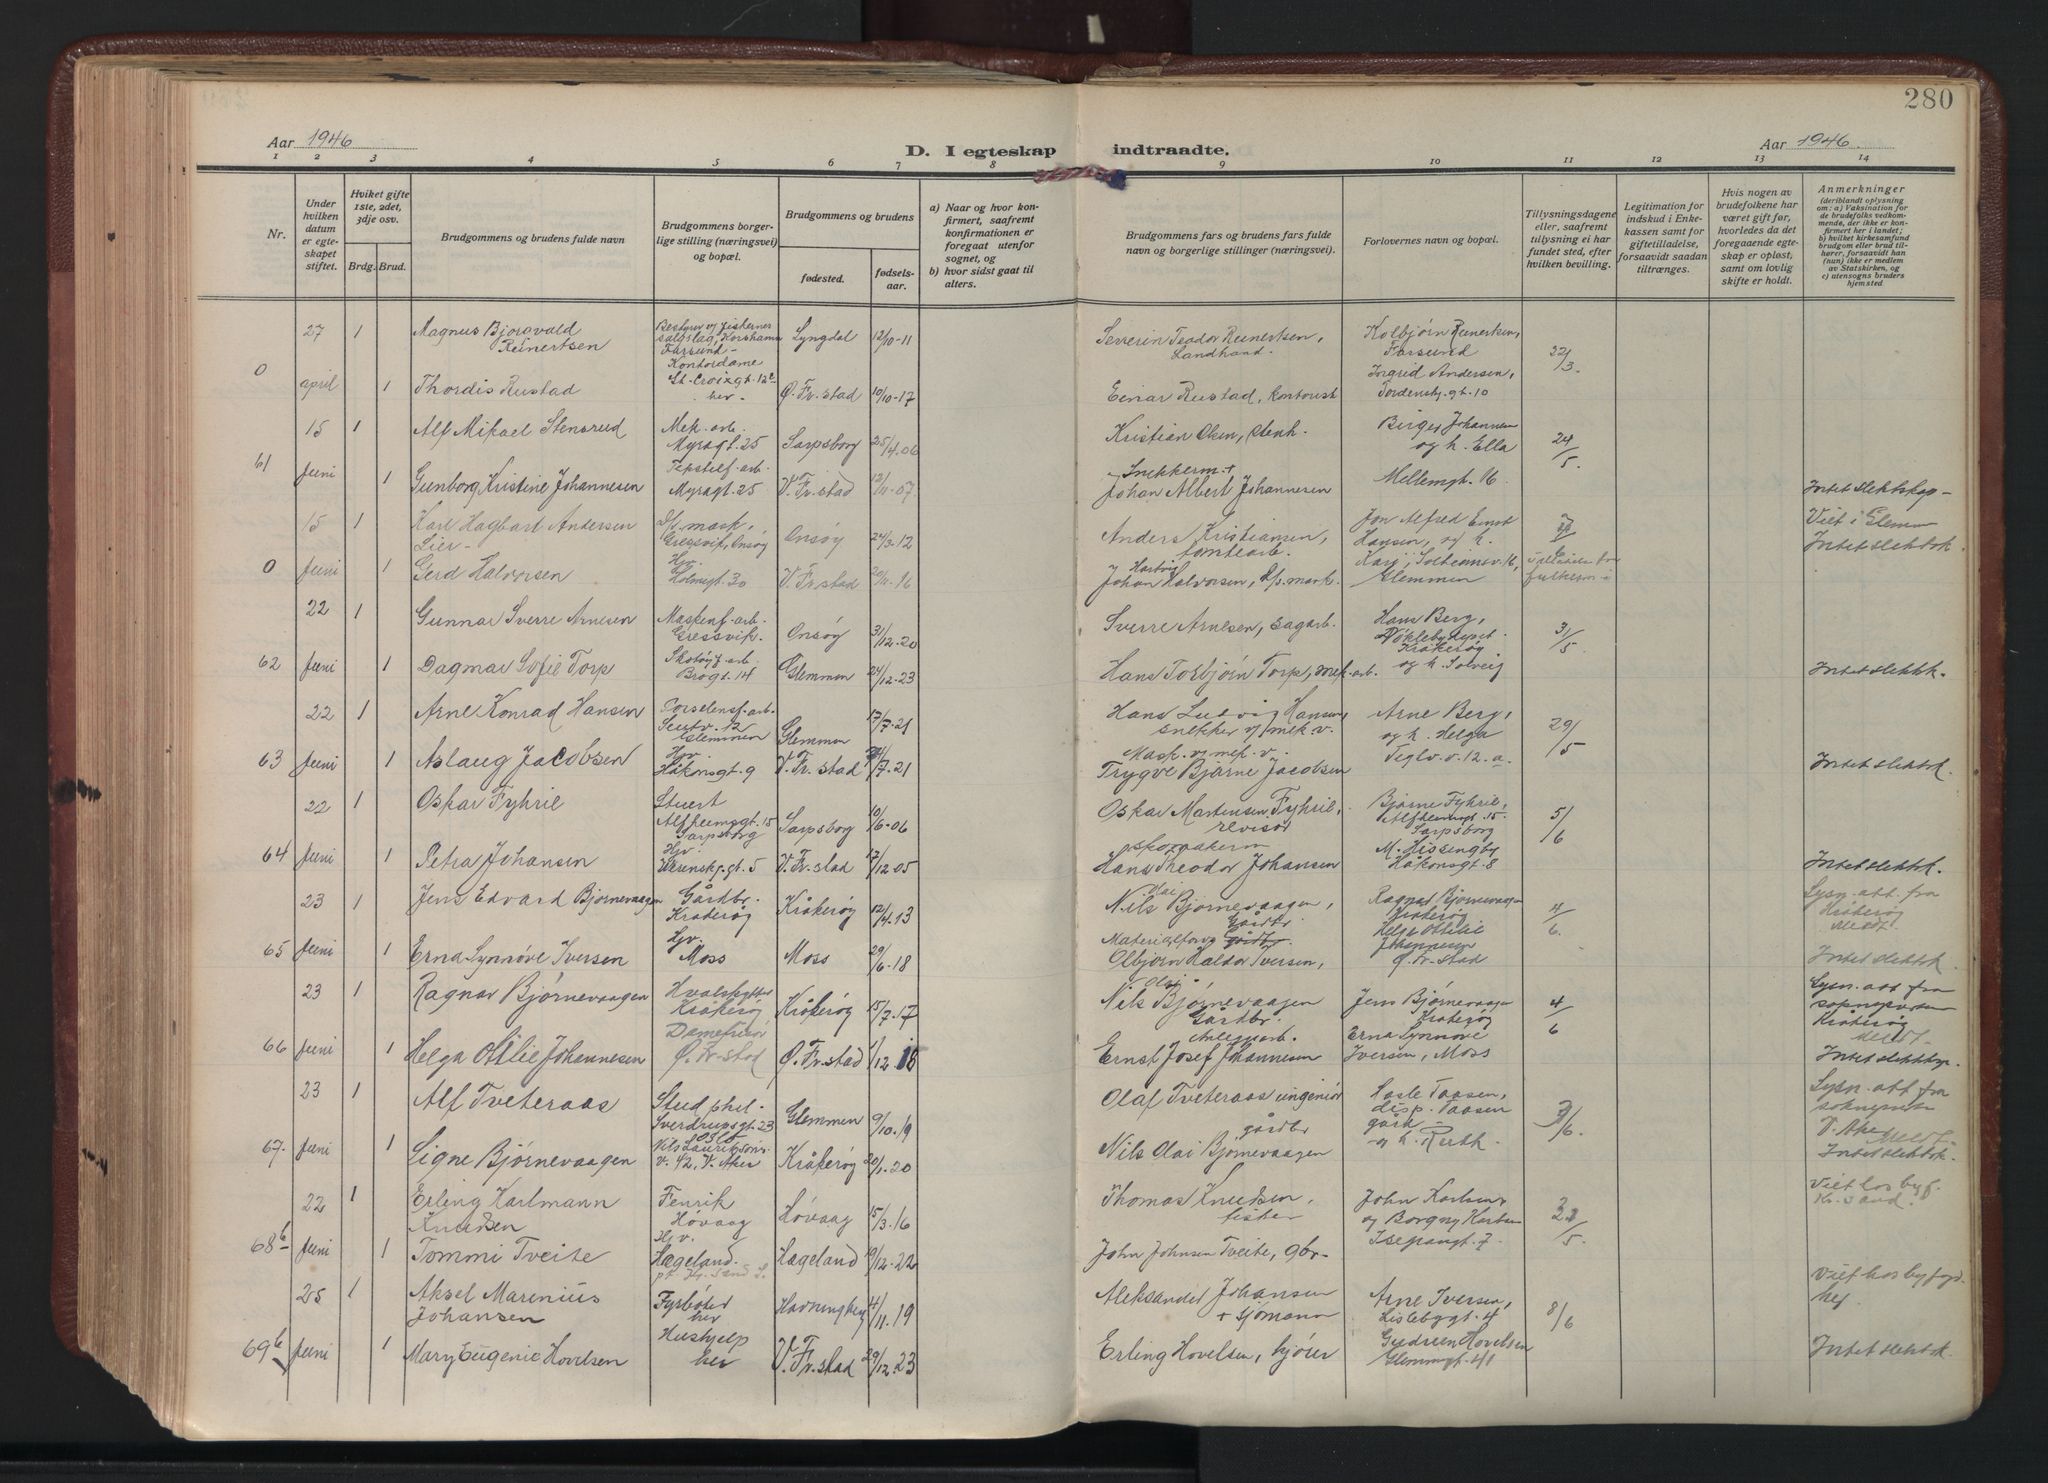 280
Aar 1946
D. I egteskap indtraadte.
Aar 1946.
1 2 3 4 5 6 7 8 9 10 11 12 13 14
Nr.
Under hvilken datum er egteskapet stiftet.
Hviket gifte 1ste, 2det, 3dje osv.
Brdg. Brud.
Brudgommens og brudens fulde navn
Brudgommens borgerlige stilling (næringsvei) og bopæl.
Brudgommens og brudens
fødested.
fødselsaar.
a) Naar og hvor konfirmert, saafremt konfirmationen er foregaat utenfor sognet, og
b) hvor sidst gaat til alters.
Brudgommens fars og brudens fars fulde navn og borgerlige stillinger (næringsvei).
Forlovernes navn og bopæl.
Tillysningsdagene eller, saafremt tillysning ei har fundet sted, efter hvilken bevilling.
Legitimation for indskud i Enkekassen samt for giftetilladelse, forsaavidt saadan tiltrænges.
Hvis nogen av brudefolkene har været gift før, hvorledes da det foregaaende egteskap er opløst, samt om lovlig skifte er holdt.
Anmerkninger (deriblandt oplysning om: a) Vaksination for de brudefolks vedkommende, der ikke er konfirmert her i landet; b) hvilket kirkesamfund brudgom eller brud tilhører, forsaavidt han (hun) ikke er medlem av Statskirken, og c) utensogns bruders hjemsted
27 1 Magnus Bjorsvald Reinertsen Bestyrer av fiskernes salgslag, Korshamn Farsund - Lyngdal 12/10-11 Severin Teodor Reinertsen, Kolbjørn Reinertsen, Farsund 22/3.
0 april 1 Thordis Rustad Kontordame St. Croixgt. 12c her Ø. Fr.stad 10/10-17 Einar Rustad, kontorist Ingrid Andersen, Tordenskj.gt. 10
15 1 Alf Mikael Stensrud Mek. arb. Myragt. 25 Sarpsborg 25/4.06 Kristian Olsen, stenh. Birger Johannesen og h. Ella 24/5.
61 Juni 1 Gunborg Kristine Johannesen Tekstilf. arb. Myragt. 25 V. Fr.stad 12/11-07 Snekkerm. + Johan Albert Johannesen Mellemgt. 16 Intet slektskap -
15 1 Karl Hagbart Andersen Lier - D/s mask, Gressvik, Onsøy Onsøy 24/3.12 Anders Kristiansen, tomtearb. Jon Alfred Ernst Hansen, og h. Viet i Glemmen Intet slektsk.
0 Juni 1 Gerd Halvorsen Hjv. Holmegt. 30 V. Fr.stad 29/11.16 Johan Hartvig Halvorsen, D/s mask. Kari, Solheimsv. 16, Glemmen
22 1 Gunnar Sverre Arnesen Maskinf. arb. Gressvik. Onsøy 31/12.20 Sverre Arnesen, sagarb. Hans Berg, Kråkerøy 31/5
62 Juni 1 Dagmar Sofie Torp Skotøyf. arb. Brogt. 14 Glemmen 24/12.23 Hans Torbjørn Torp, mek. arb. og h. Solveig Intet slektsk.
22 1 Arne Konrad Hansen Porselensf. arb. 12 Glemmen Glemmen 17/7.21 Hans Ludvig Hansen, snekker v/ mek v. Arne Berg, og h. Helga 29/5
63 Juni 1 Aslaug Jacobsen Hjv. Håkonsgt. 9 V. Fr.stad /7.21 Mask. v. mek. v. Trygve Bjarne Jacobsen Teglv. v. 12. a Intet slektsk.
22 1 Oskar Fyhril Stuert Alfheimsgt. 15 Sarpsborg Sarpsborg 10/6-06 Oskar Martinsen Fyhril, revisor Bjarne Fyhril, Alfheimsgt 15. Sarpsborg 5/6
64 Juni 1 Petra Johansen Hjv. gt. 5 V. Fr.stad 17/12.05 skomakerm Hans Theodor Johansen M. Hissingby Håkonsgt. 8 Intet slektsk.
23 1 Jens Edvard Bjørnevaagen Gårdbr. Kråkerøy Kråkerøy 12/4.13 Nils Olai Bjørnevaagen, Gårdbr. Ragnar Bjørnevaagen Kråkerøy 4/6. Lysn. att. fra Kråkerøy
65 Juni 1 Erna Synnøve Iversen Hjv. Moss Moss 29/6.18 Materialforv. gårdbr. Olbjørn Haldor Iversen, Helga Ottilie Johannesen Ø. Fr.stad Intet slektsk.
23 1 Ragnar Bjørnevaagen Hvalskytter Kråkerøy Kråkerøy 15/7.17 Nils Olai Bjørnevaagen Gårdbr. Jens Bjørnevaagen Kråkerøy 4/6 Lysn. att fra soknepresten Kråkerøy
66 Juni 1 Helga Ottilie Johannesen Damefrisør Ø. Fr.stad Ø. Fr.stad 1/12.18 Anleggsarb. Ernst Josef Johannesen Erna Synnøve Iversen, Moss Intet slektsk.
23 1 Alf Tveteraas Stud phil. Sverdrupsgt. 23 Oslo Glemmen 9/10.19 Olaf Tveteraas ingeniør Hasle Taasen, disp. Taasen gård og h. Ruth. 3/6. Lysn. att fra soknepresten V. Aker
67. Juni 1 Signe Bjørnevaagen Nils Lauritssøns v. 42, V. Aker Kråkerøy 20/1.20 gårdbr Nils Olai Bjørnevaagen Intet slektsk.
22 1 Erling Karlmann Knudsen Fenrik Høvaag Høvaag 15/3.16 Thomas Knudsen, fisker John Karlsen, og Borgny Karlsen Isegrangt. 7. 22/5 Viet hos byf. Kr.sand.
68b Juni 1 Tommi Tveite Hjv. Hægeland. pt. Kr.sand S. Hægeland 19/12.22 John Johnsen Tveite, gbr.
25 1 Aksel Marenius Johansen Fyrbøter her 4/11.19 Aleksander Johansen + sjømann Arne Iversen, Lislebygt. 4 8/6 Viet hos byfogd. her.
69b Juni 1 Mary Eugenie Hovelsen Hushjelp her V. Fr.stad 29/12.23 Erling Hovelsen, kjører Gudrun Hovelsen Glemmengt. 41 Intet slektsk.